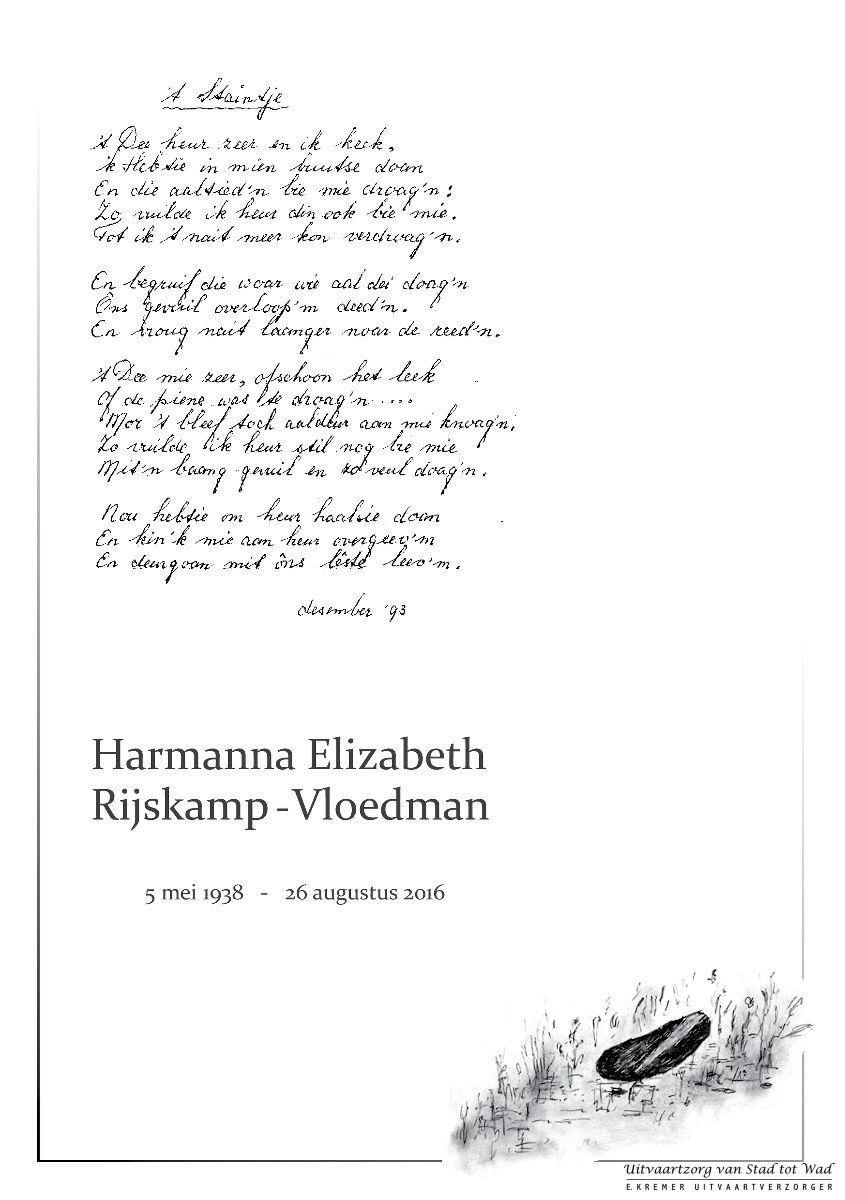 't Staintje
't Dee heur zeer en ik keek,
'k Hebsie in mien buutse doan
En die aaltied'n bie mie droag'n:
Zo vuilde ik heur din ook bie mie.
Tot ik 't nait meer kon verdroag'n.
En begruif die woar wie aal dei doag'n
Ons gevuil overloop'm deed'n.
En vroug nait laanger noar de reed'n.
't Dee mie zeer, ofschoon het leek
Of de piene was te droag'n ....
Mor 't bleef toch aaldeur aan mie knoag'n,
Zo vuilde ik heur stil nog bie mie
Mit'n baang gevuil en zo veul doag'n.
Nou hebsie om heur haalsie doan
En kin'k mie aan heur overgeev'm
En deurgoan mit ôns lêste leev'm.
desember '93
Harmanna Elizabeth
Rijskamp - Vloedman
5 mei 1938 - 26 augustus 2016
Uitvaartzorg van Stad tot Wad
E. KREMER UITVAARTVERZORGER